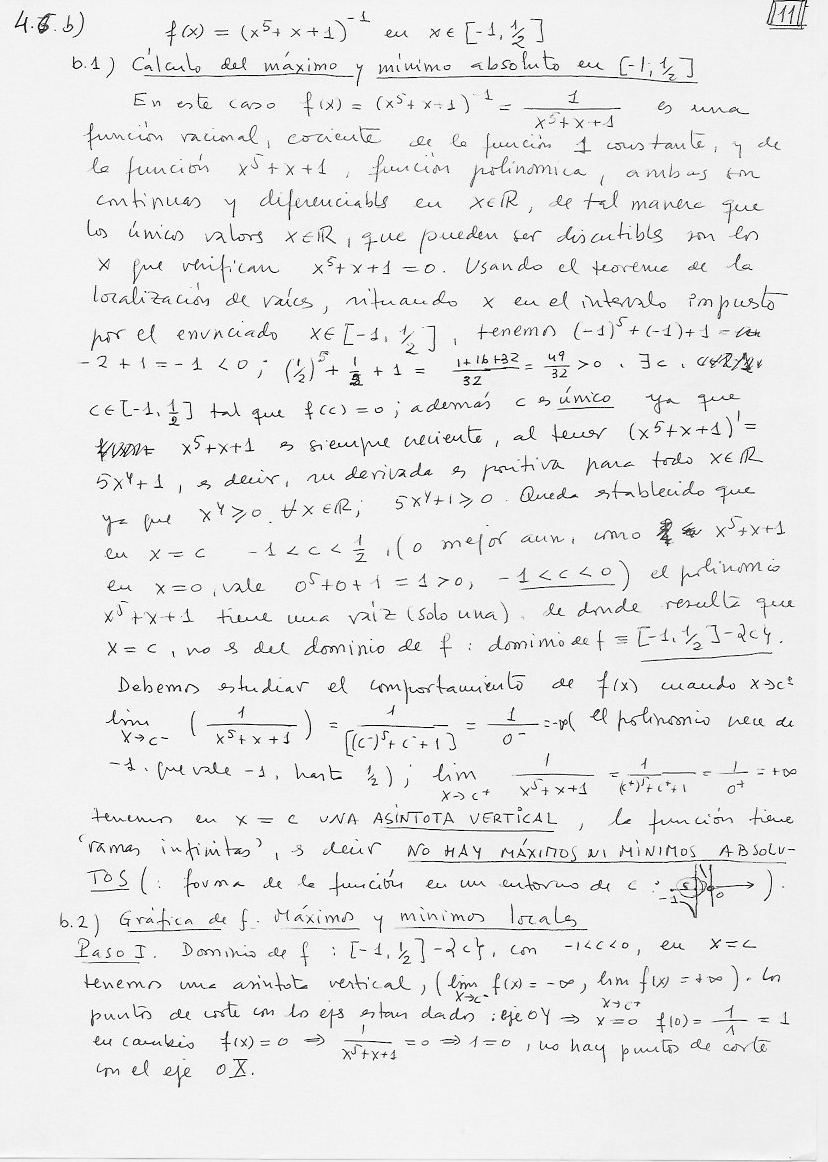 4.6 b) f(x) = (x⁵+x+1)⁻¹ en x∈[-1, 1/2] 11
b.1) Cálculo del máximo y mínimo absoluto en [-1, 1/2]
En este caso f(x) = (x⁵+x+1)⁻¹ = 1/(x⁵+x+1) es una
función racional, cociente de la función 1 constante, y de
la función x⁵+x+1, función polinómica, ambas son
continuas y diferenciables en x∈ℝ, de tal manera que
los únicos valores x∈ℝ, que pueden ser discutibles son los
x que verifican x⁵+x+1=0. Usando el teorema de la
localización de raíces, situando x en el intervalo impuesto
por el enunciado x∈[-1, 1/2], tenemos (-1)⁵+(-1)+1 =
-2+1=-1<0; (1/2)⁵+1/2+1 = (1+16+32)/32 = 49/32 >0. ∃c,
c∈[-1, 1/2] tal que f(c)=0; además c es único ya que
x⁵+x+1 es siempre creciente, al tener (x⁵+x+1)'=
5x⁴+1, es decir, su derivada es positiva para todo x∈ℝ
ya que x⁴≥0 ∀x∈ℝ; 5x⁴+1≥0. Queda establecido que
en x=c -1<c<1/2, (o mejor aun, como x⁵+x+1
en x=0, vale 0⁵+0+1=1>0, -1<c<0) el polinomio
x⁵+x+1 tiene una raíz (solo una). de donde resulta que
x=c, no es del dominio de f: dominio de f ≡ [-1, 1/2]-{c}.
Debemos estudiar el comportamiento de f(x) cuando x→c±
lim x→c⁻ (1/(x⁵+x+1)) = 1/[(c⁻)⁵+c⁻+1] = 1/0⁻ = -∞ (el polinomio crece de
-1. que vale -1, hasta 1/2); lim x→c⁺ 1/(x⁵+x+1) = 1/((c⁺)⁵+c⁺+1) = 1/0⁺ = +∞
tenemos en x=c UNA ASÍNTOTA VERTICAL, la función tiene
'ramas infinitas', es decir NO HAY MÁXIMOS NI MÍNIMOS ABSOLU-
TOS (: forma de la función en un entorno de c: -1 c 0 ).
b.2) Gráfica de f. Máximos y mínimos locales
Paso I. Dominio de f: [-1, 1/2]-{c}, con -1<c<0, en x=c
tenemos una asíntota vertical, (lim x→c⁻ f(x) = -∞, lim x→c⁺ f(x) = +∞). Los
puntos de corte con los ejes estan dados: eje OY ⇒ x=0 f(0)=1/1=1
en cambio f(x)=0 ⇒ 1/(x⁵+x+1)=0 ⇒ 1=0, no hay puntos de corte
con el eje OX.